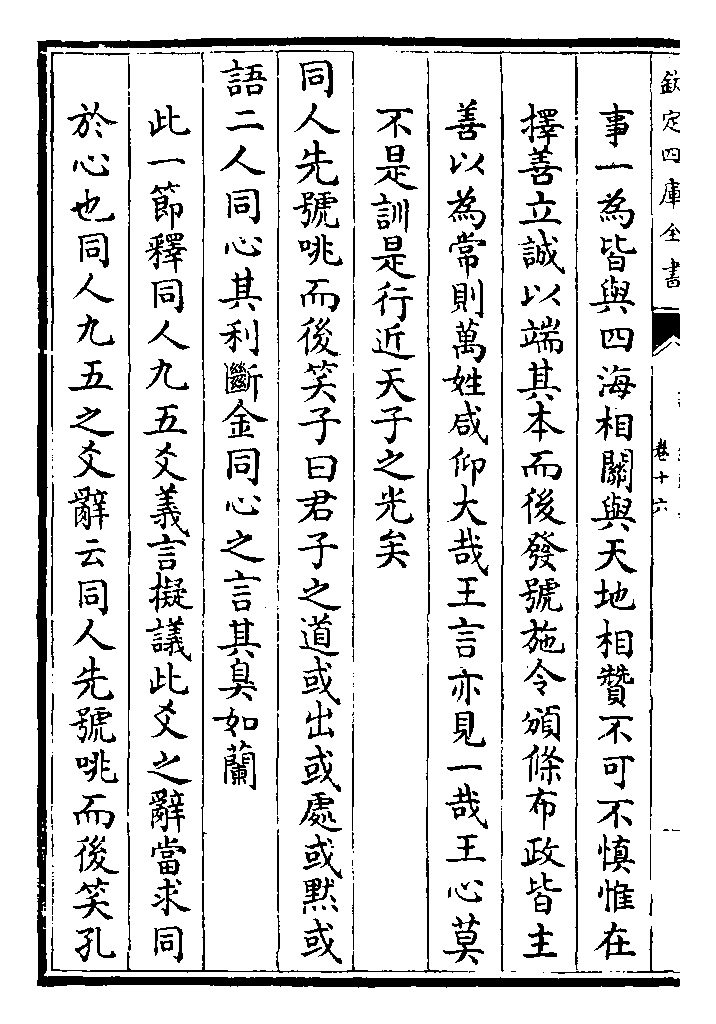 欽定四庫全書
卷十六
事一為皆與四海相關與天地相贊不可不慎惟在
擇善立誠以端其本而後發號施令頒條布政皆主
善以為常則萬姓咸仰大哉王言亦見一哉王心莫
不是訓是行近天子之光矣
同人先號咷而後笑子曰君子之道或出或處或默或
語二人同心其利斷金同心之言其臭如蘭
此一節釋同人九五爻義言擬議此爻之辭當求同
於心也同人九五之爻辭云同人先號咷而後笑孔